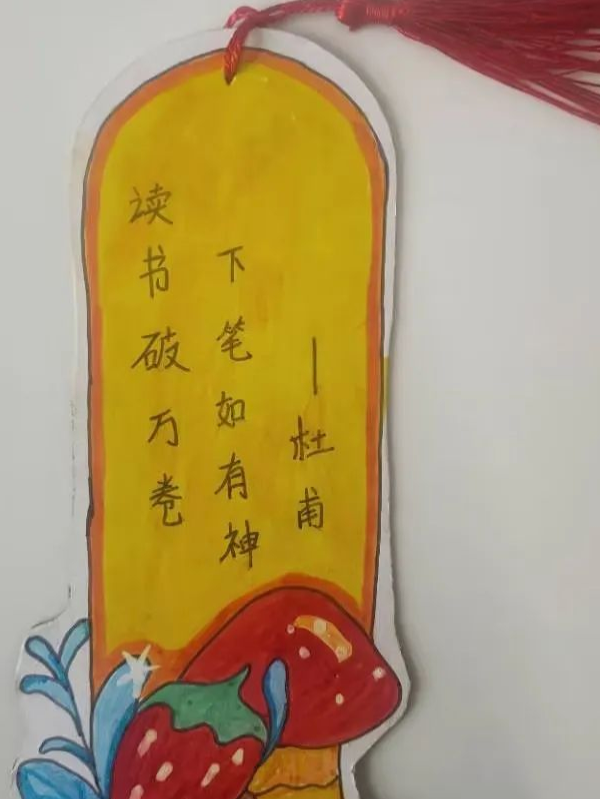 读书破万卷
下笔如有神
—杜甫